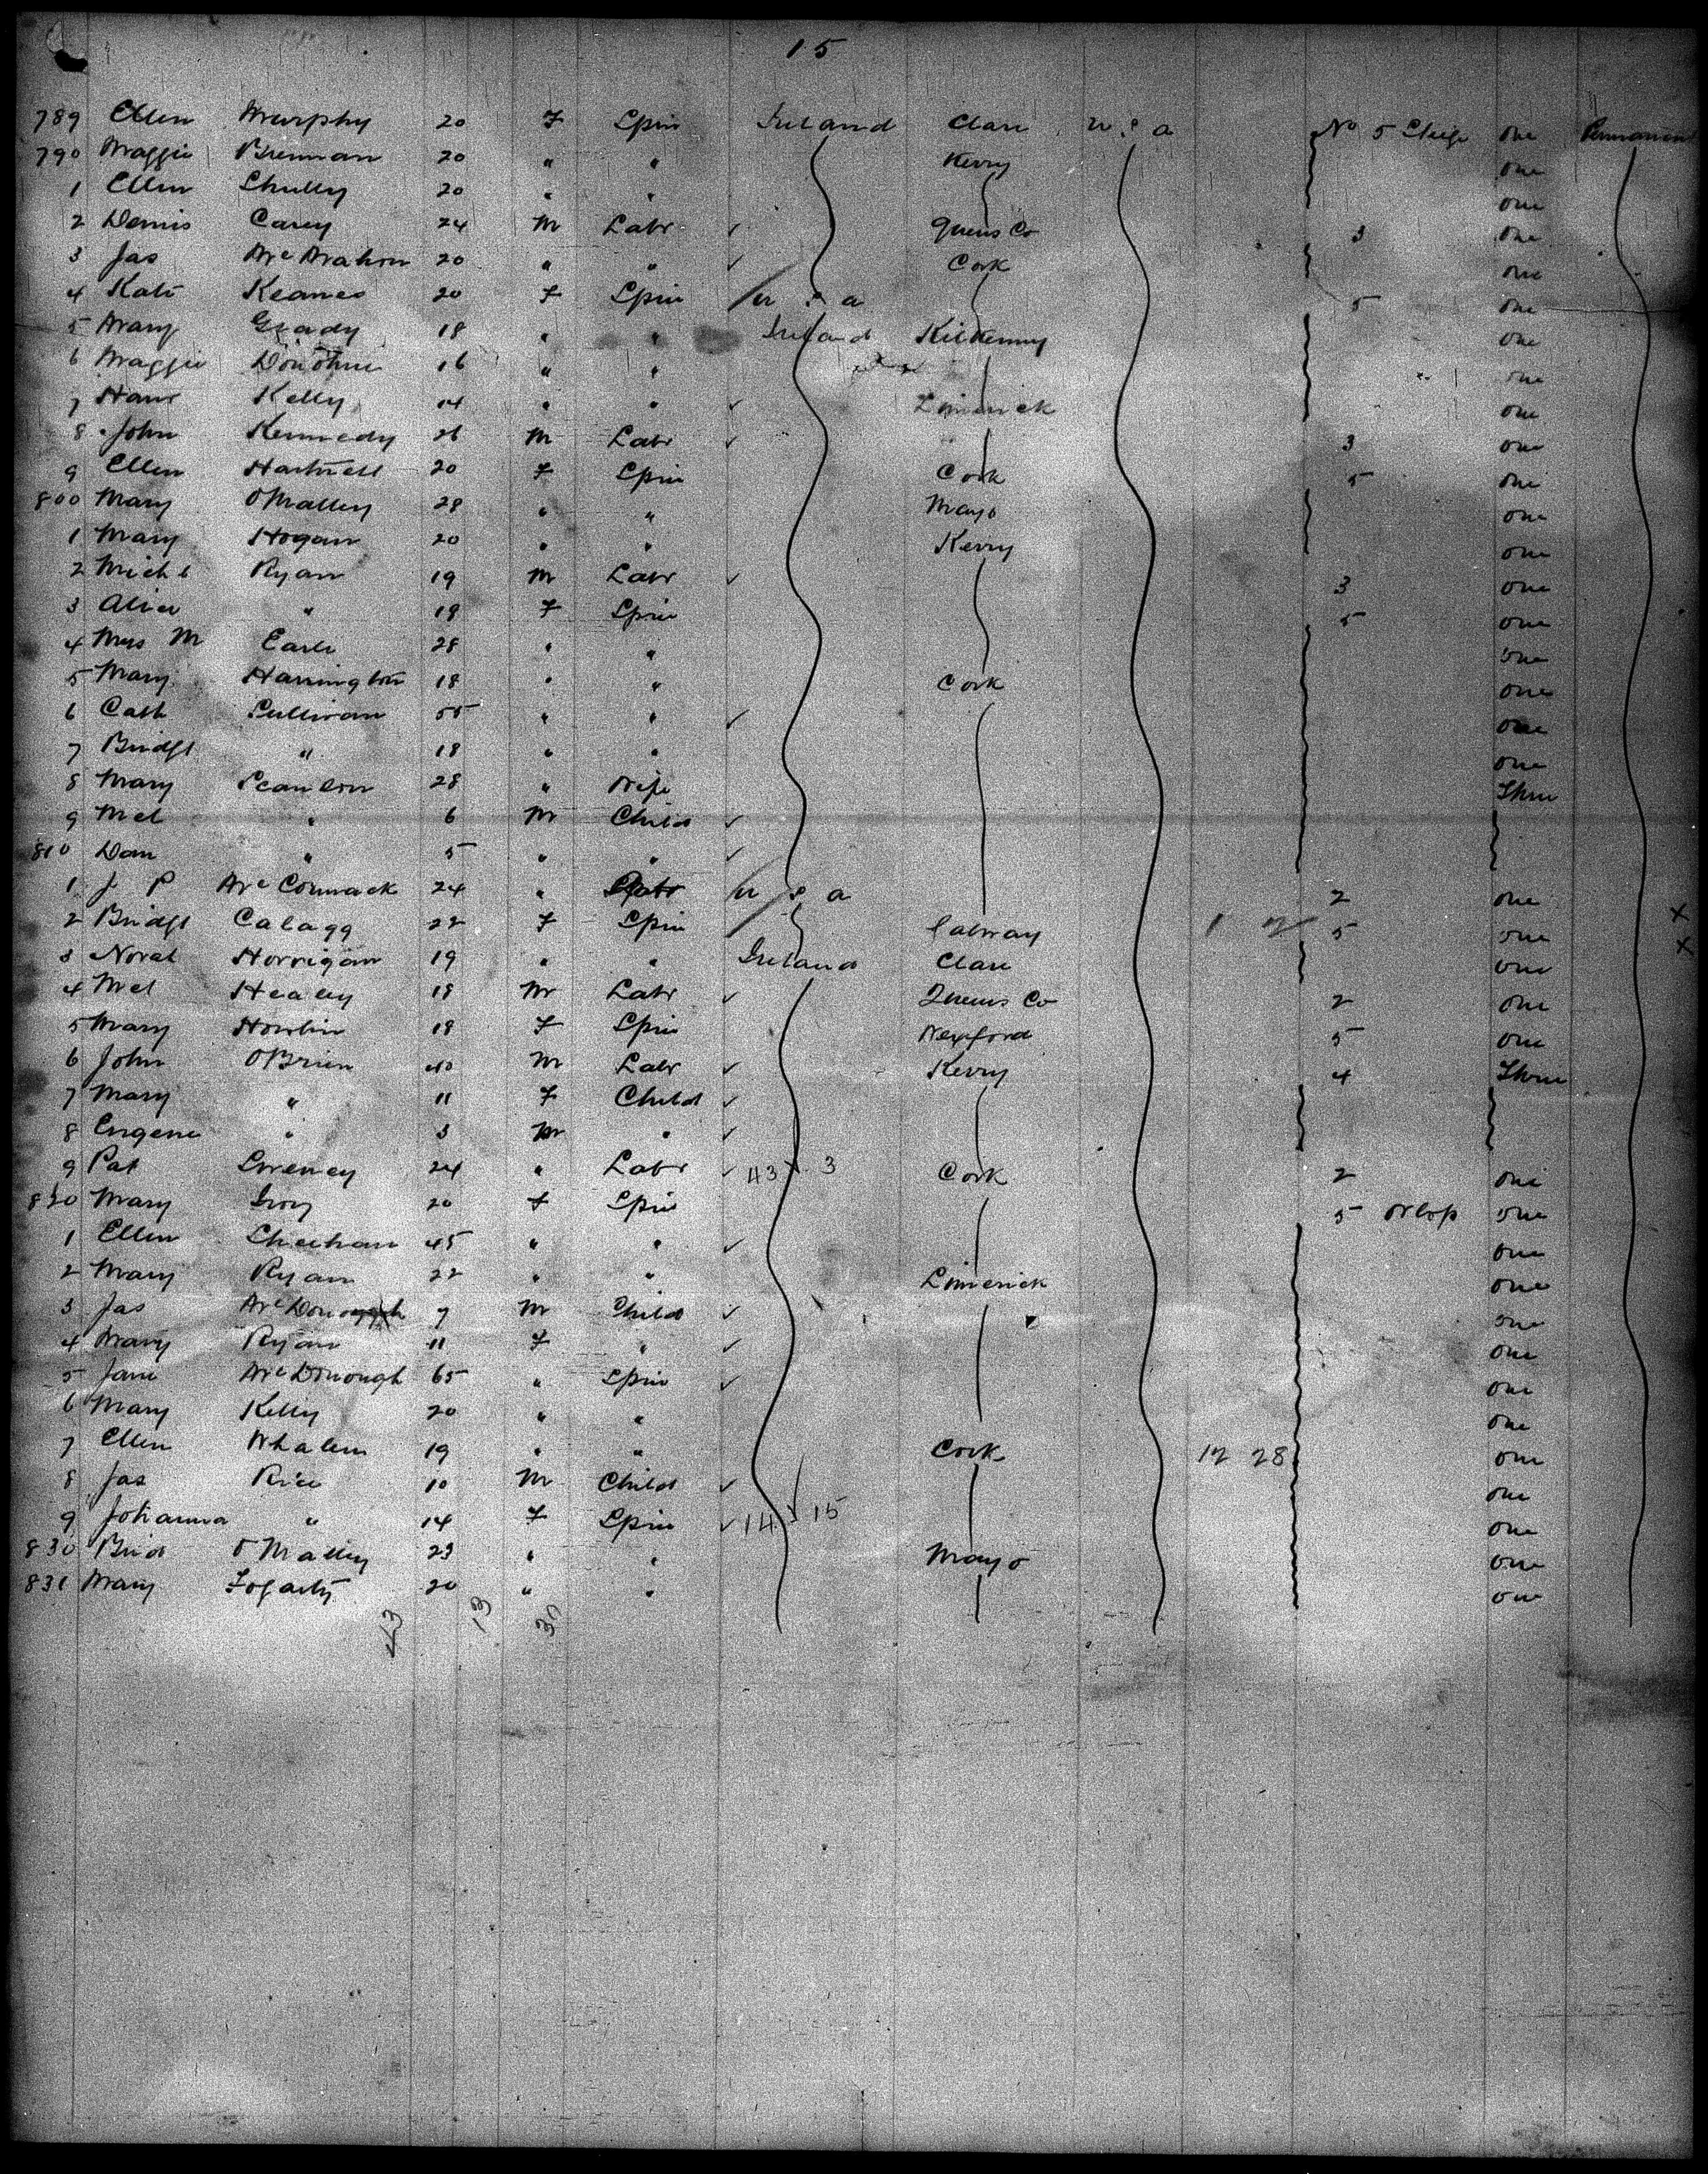 15
789 Ellen Murphy 20 F Spin Ireland Clare U S A No 5 Steege one Permanent
790 Maggie Brennan 20 " " Kerry one
1 Ellen Shully 20 " " one
2 Denis Carey 24 M Labr ✓ Queens Co 3 one
3 Jas McMahon 20 " " ✓ Cork one
4 Kate Keanes 20 F Spin U S A 5 one
5 Mary Grady 18 " " Ireland Kilkenny one
6 Maggie Donohue 16 " " one
7 Kelly 14 " " ✓ Limerick one
8 John Kennedy 26 M Labr ✓ 3 one
9 Ellen Hartnett 20 F Spin Cork 5 one
800 Mary OMalley 28 " " Mayo one
1 Mary Hogan 20 " " Kerry one
2 Michl Ryan 19 M Labr ✓ 3 one
3 Alice " 18 F Spin 5 one
4 Mrs M Earle 28 " " one
5 Mary Harrington 18 " " Cork one
6 Cath Sullivan 55 " " ✓ one
7 Bridgt " 18 " " one
8 Mary Scanlon 28 " Wife Three
9 Mcl " 6 M Child ✓
810 Dan " 5 " " ✓
1 J P McCormack 24 " Labr U S A 2 one
2 Bridgt Calagg 22 F Spin Galway 1 2 5 one x
3 Norah Horrigan 19 " " Ireland Clare one x
4 Mcl Healey 18 M Labr ✓ Queens Co 2 one
5 Mary Howlin 18 F Spin Wexford 5 one
6 John OBrien 40 M Labr ✓ Kerry 4 Three
7 Mary " 11 F Child ✓
8 Eugene " 3 M " ✓
9 Pat Sweeney 24 " Labr ✓ 43 3 Cork 2 one
820 Mary 20 F Spin 5 Orlop one
1 Ellen Sheehan 45 " " ✓ one
2 Mary Ryan 22 " " Limerick one
3 Jas McDonough 7 M Child ✓ one
4 Mary Ryan 11 F " ✓ one
5 Jane McDonough 65 " Spin ✓ one
6 Mary Kelly 20 " " one
7 Ellen Whalen 19 " " Cork 12 28 one
8 Jas Rice 10 M Child ✓ one
9 Johanna " 14 F Spin ✓ 14 15 one
830 Brid O Malley 23 " " Mayo one
831 Mary Fogarty 20 " " one
43 13 30